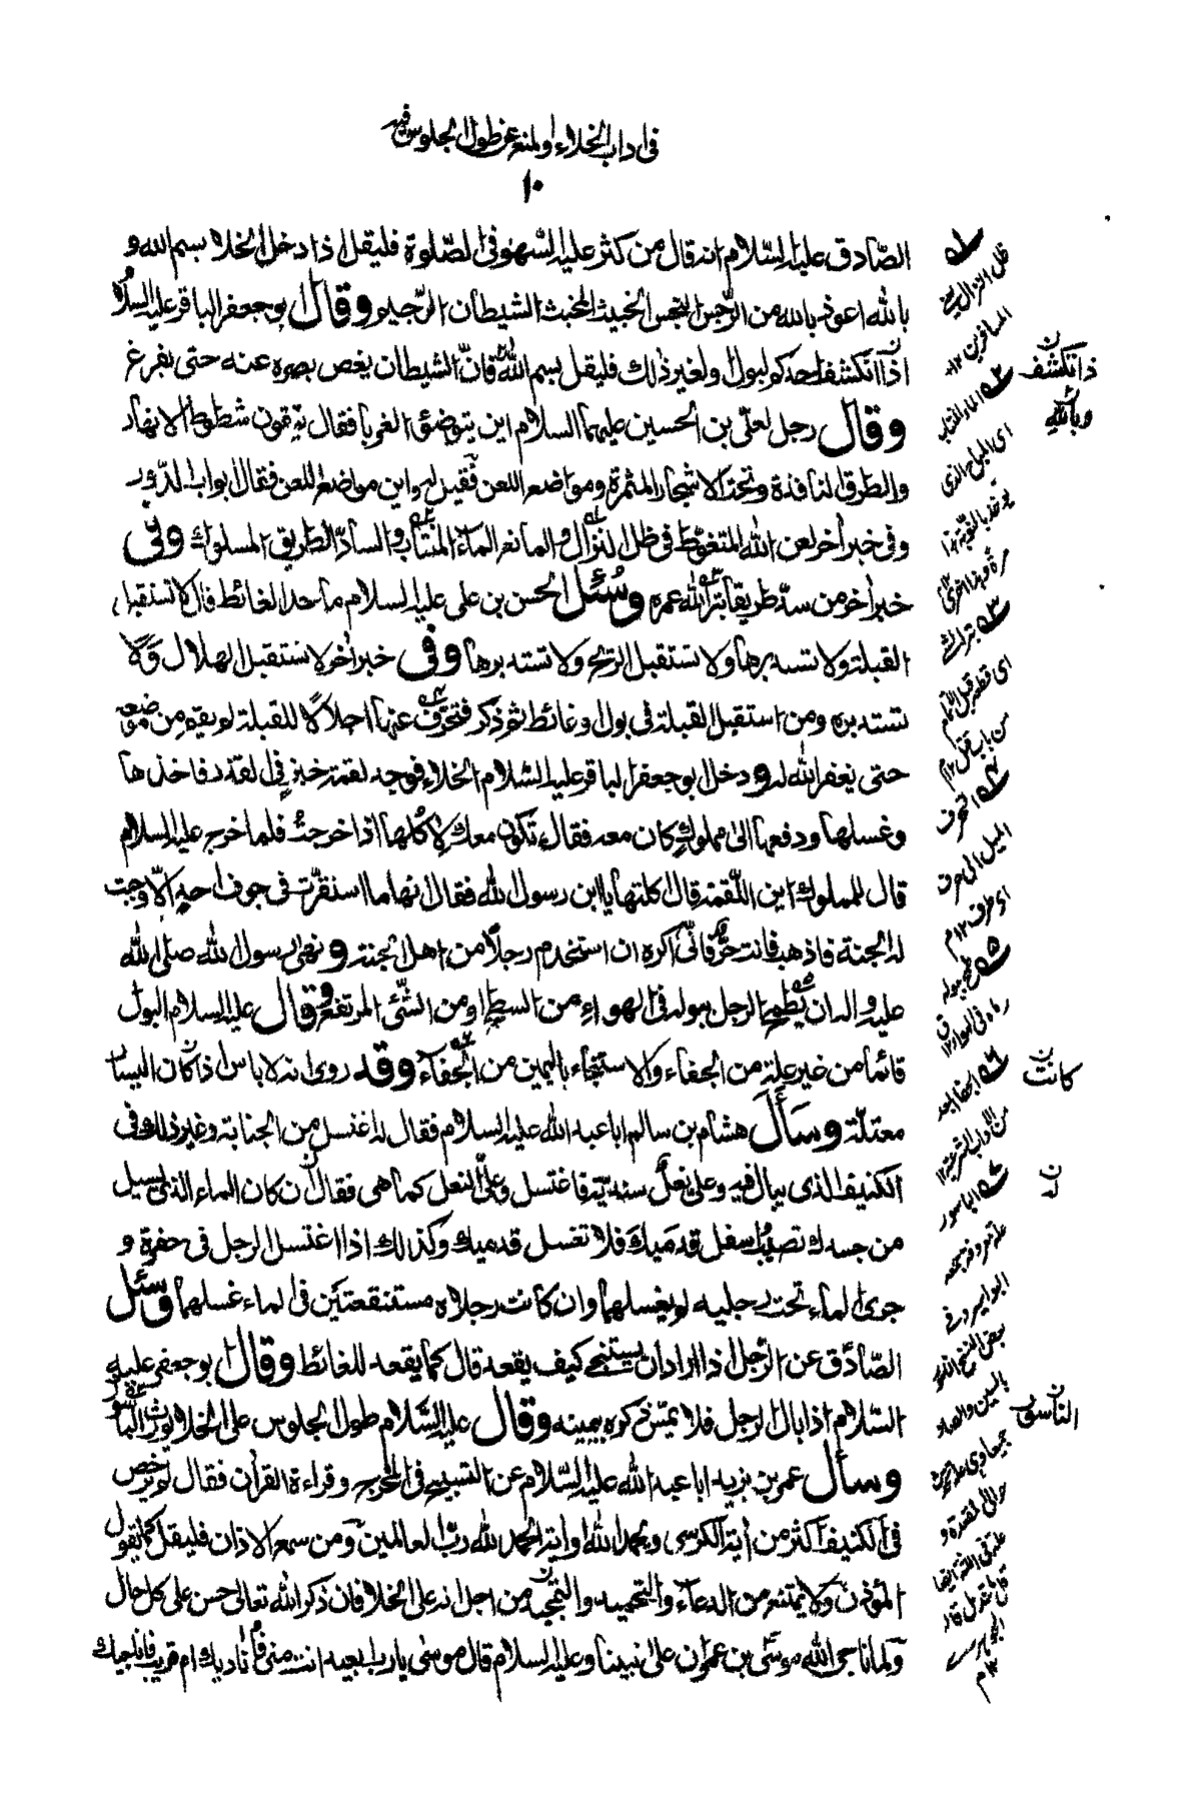 فی اداب الخلاء والمنع عن طول الجلوس فیه
١٠
الصّادق علیه السّلام انه قال من کثر علیه السّهو فی الصّلوة فلیقل اذا دخل الخلا بسم الله و
بالله اعوذ بالله من الرّجس النجس الخبیث المخبث الشیطان الرّجیم وقال ابو جعفر الباقر علیه السلام
اذا انکشف احدکم لبول او لغیر ذلك فلیقل بسم الله فانّ الشیطان یغض بصره عنه حتی یفرغ
وقال رجل لعلی بن الحسین علیهما السلام این یتوضئ الغربا فقال یتقون شطوط الانهار
والطرق النافذة وتحت الاشجار المثمرة ومواضع اللعن فقیل له واین مواضع اللعن فقال ابواب الدّور
وفی خبر أخر لعن الله المتغوّط فی ظل النزال والمانع الماء المنتاب والسادّ الطریق المسلوك وفی
خبر أخر من سدّ طریقا بتر الله عمره وسُئل الحسن بن علی علیه السلام ما حد الغائط قال لا تستقبل
القبلة ولا تستدبرها ولا تستقبل الرّیح ولا تستدبرها وفی خبر أخر لا تستقبل الهلال ولا
تستدبره ومن استقبل القبلة فی بول او غائط ثم ذکر فتحرّف عنها اجلالاً للقبلة لم یقم من موضعه
حتی یغفر الله له ودخل ابو جعفر الباقر علیه السّلام الخلاء فوجد لقمة خبز فی القذر فاخذها
وغسلها ودفعها الی مملوك کان معه فقال تکون معك لأکلها اذا خرجتُ فلما خرج علیه السلام
قال للمملوك این اللّقمة قال اکلتها یا ابن رسول الله فقال انها ما استقرّت فی جوف احد الّا وجبت
له الجنة فاذهب فانت حرّ فانّی اکره ان استخدم رجلاً من اهل الجنة ونهی رسول الله صلی الله
علیه واله ان یُطمح الرجل ببوله فی الهواء من السطح او من الشّئی المرتفع وقال علیه السلام البول
قائما من غیر علة من الجفاء والاستنجاء بالیمین من الجفاء وقد روی انه لا باس اذا کان الیسار
معتلّة وسَأَل هشام بن سالم ابا عبد الله علیه السلام فقال له اغتسل من الجنابة وغیر ذلك فی
الکنیف الذی یبال فیه وعلی نعل سندیّة فاغتسل وعلیّ النعل کما هی فقال ان کان الماء الذی یسیل
من جسدك تصیب اسفل قدمیك فلا تغسل قدمیك وکذلك اذا اغتسل الرجل فی حفرة و
جری الماء تحت رجلیه لم یغسلهما وان کانت رجلاه مستنقعتین فی الماء غسلهما وسئل
الصّادق عن الرّجل اذا اراد ان یستنجی کیف یقعد قال کما یقعد للغائط وقال ابو جعفر علیه
السّلام اذا بال الرجل فلا یمسّ ذکره بیمینه وقال علیه السّلام طول الجلوس علی الخلا یورث الباسور
وسأل عمر بن یزید ابا عبد الله علیه السّلام عن التسبیح فی المخرج وقراءة القرأن فقال لم یرخص
فی الکنیف اکثر من أیة الکرسی ویحمد الله او أیة الحمد لله ربّ العالمین ومن سمع الاذان فلیقل کما یقول
المؤذن ولا یمتنع من الدعاء والتحمید والتمجید من اجل انه علی الخلا فان ذکر الله تعالی حسن علی کل حال
ولما ناجی الله موسی بن عمران علی نبینا وعلیه السلام قال موسی یا رب ابعید انت منی فأنادیك ام قریب فاناجیك
ظل النزال
المسافرین ١٢
ای المباح الذی
بتر الله
من باب قتل ١٢
الی طرف ١٢ م
ن
ذا تکشف
وبالله
ن
کانت
ن
له
ن
الناسور